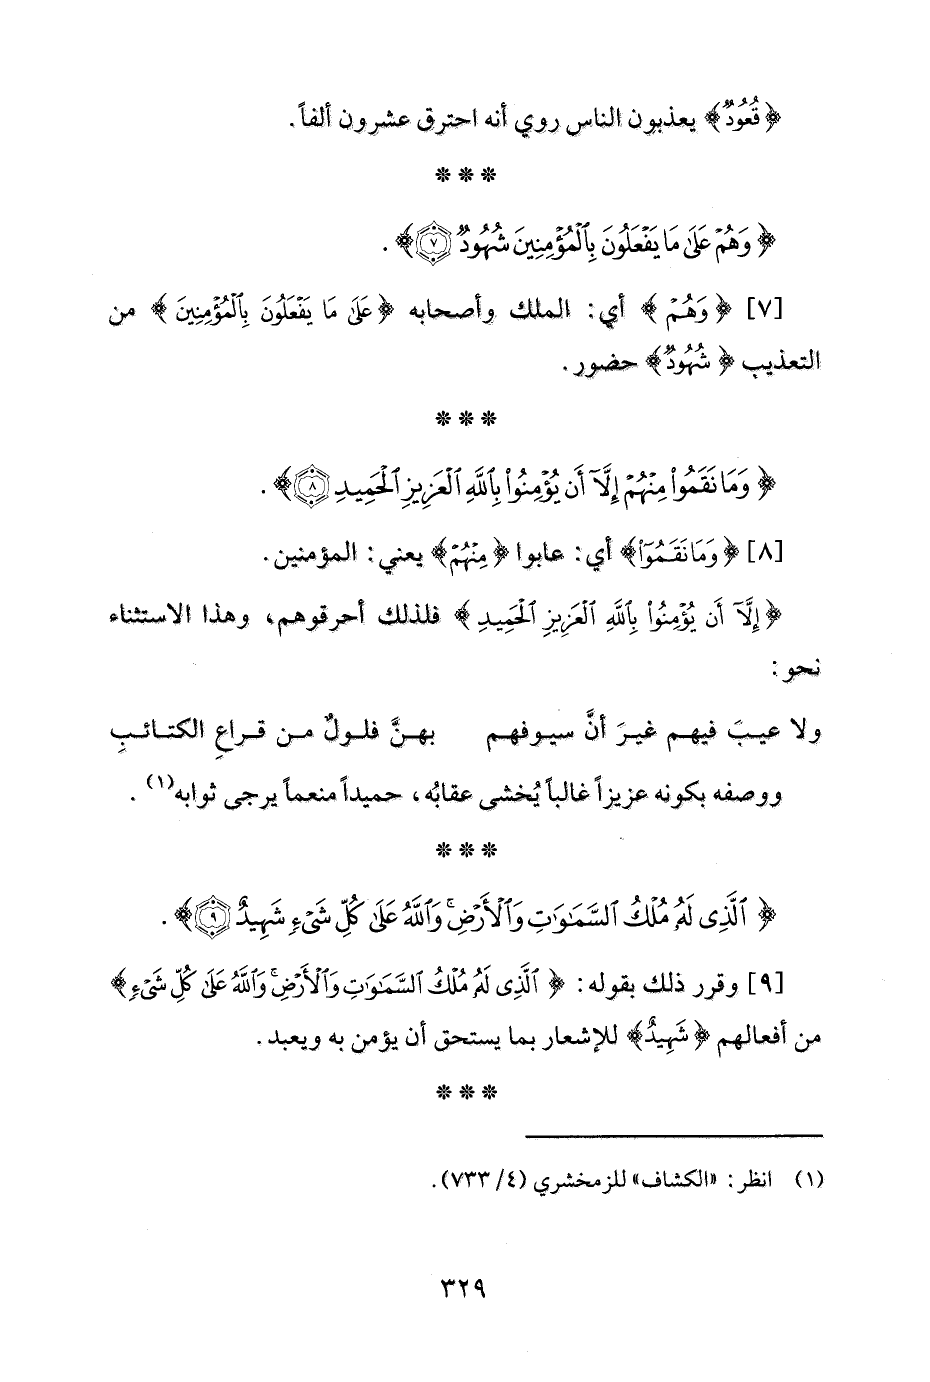 ﴿قُعُودٌ﴾ يعذبون الناس روي أنه احترق عشرون ألفاً.
* * *
﴿وَهُمْ عَلَىٰ مَا يَفْعَلُونَ بِٱلْمُؤْمِنِينَ شُهُودٌ ٧﴾.
[٧] ﴿وَهُمْ﴾ أي: الملك وأصحابه ﴿عَلَىٰ مَا يَفْعَلُونَ بِٱلْمُؤْمِنِينَ﴾ من
التعذيب ﴿شُهُودٌ﴾ حضور.
* * *
﴿وَمَا نَقَمُوا۟ مِنْهُمْ إِلَّآ أَن يُؤْمِنُوا۟ بِٱللَّهِ ٱلْعَزِيزِ ٱلْحَمِيدِ ٨﴾.
[٨] ﴿وَمَا نَقَمُوٓا۟﴾ أي: عابوا ﴿مِنْهُمْ﴾ يعني: المؤمنين.
﴿إِلَّآ أَن يُؤْمِنُوا۟ بِٱللَّهِ ٱلْعَزِيزِ ٱلْحَمِيدِ﴾ فلذلك أحرقوهم، وهذا الاستثناء
نحو:
ولا عيبَ فيهم غيرَ أنَّ سيوفهم بهنَّ فلولٌ من قراعِ الكتائبِ
ووصفه بكونه عزيزاً غالباً يُخشى عقابُه، حميداً منعماً يرجى ثوابه(١).
* * *
﴿ٱلَّذِى لَهُۥ مُلْكُ ٱلسَّمَٰوَٰتِ وَٱلْأَرْضِ ۚ وَٱللَّهُ عَلَىٰ كُلِّ شَىْءٍ شَهِيدٌ ٩﴾.
[٩] وقرر ذلك بقوله: ﴿ٱلَّذِى لَهُۥ مُلْكُ ٱلسَّمَٰوَٰتِ وَٱلْأَرْضِ ۚ وَٱللَّهُ عَلَىٰ كُلِّ شَىْءٍ﴾
من أفعالهم ﴿شَهِيدٌ﴾ للإشعار بما يستحق أن يؤمن به ويعبد.
* * *
(١) انظر: «الكشاف» للزمخشري (٤/ ٧٣٣).
٣٢٩